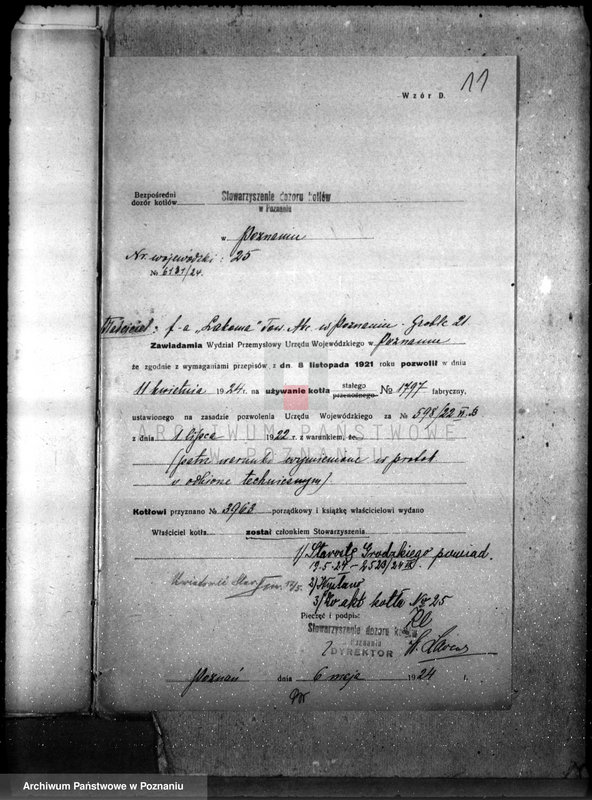 11
Wzór D.
Bezpośredni
dozór kotłów
Stowarzyszenie dozoru kotłów
w Poznaniu
w Poznaniu
Nr. wojewódzki: 25
№ 6131/24.
Właściciel: f-a "Lakoma" Tow. Akc. w Poznaniu - Groble 21
Zawiadamia Wydział Przemysłowy Urzędu Wojewódzkiego w Poznaniu
że zgodnie z wymaganiami przepisów z dn. 8 listopada 1921 roku pozwolił w dniu
11 kwietnia 1924 r. na używanie kotła stałego przenośnego № 1797 fabryczny,
ustawionego na zasadzie pozwolenia Urzędu Wojewódzkiego za № 598/22
z dnia 1 lipca 1922 r. z warunkiem, że
(patrz warunki wymienione w protok.
o odbiorze technicznym)
Kotłowi przyznano № 3963 porządkowy i książkę właścicielowi wydano
Właściciel kotła został członkiem Stowarzyszenia
1/ Starosta Grodzkiego powiad.
19.5.24 - 2523/24
2/ Wysłano
3/ Do akt kotła № 25
Pieczęć i podpis:
Stowarzyszenie dozoru kotłów
w Poznaniu
DYREKTOR
Poznań dnia 6 maja 1924 r.
ARCHIWUM PAŃSTWOWE
W POZNANIU
Archiwum Państwowe w Poznaniu